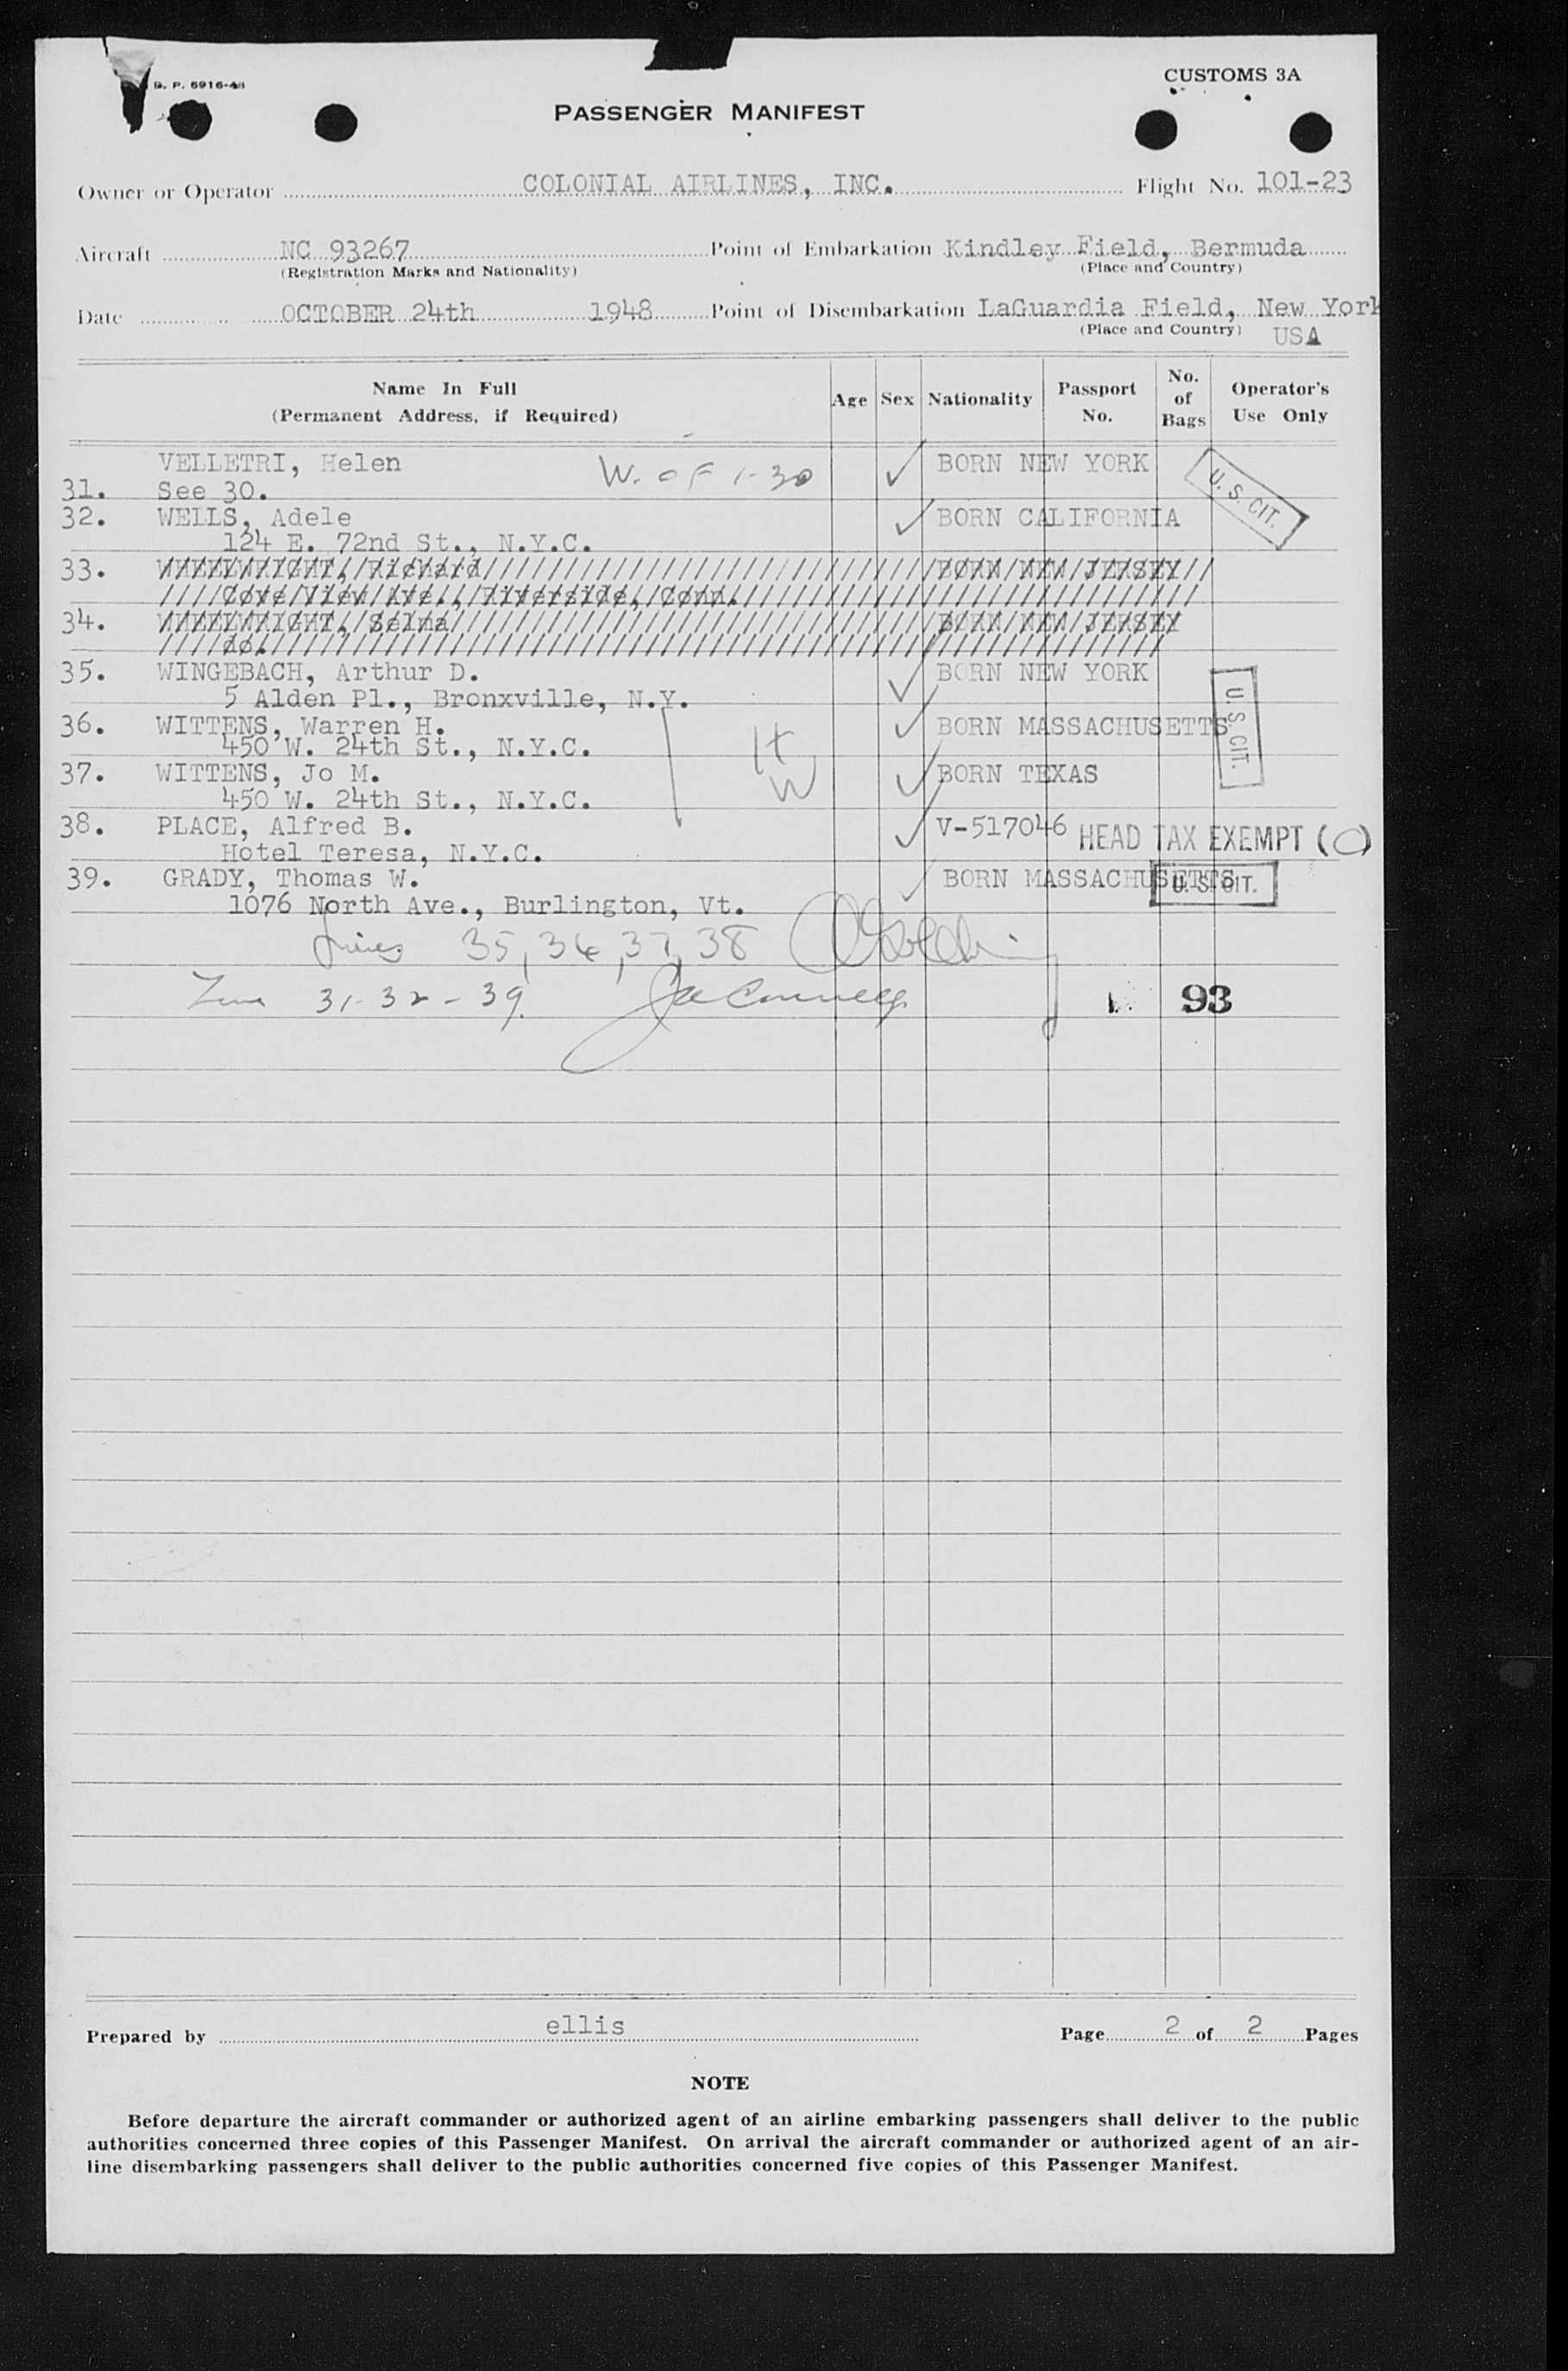 B. P. 6916-48
CUSTOMS 3A
PASSENGER MANIFEST
Owner or Operator COLONIAL AIRLINES, INC. Flight No. 101-23
Aircraft NC 93267 Point of Embarkation Kindley Field, Bermuda
(Registration Marks and Nationality) (Place and Country)
Date OCTOBER 24th 1948 Point of Disembarkation LaGuardia Field, New York
(Place and Country) USA
Name In Full (Permanent Address, if Required) Age Sex Nationality Passport No. No. of Bags Operator's Use Only
VELLETRI, Helen W. OF 1-30 BORN NEW YORK
31. See 30.
U. S. CIT.
32. WELLS, Adele BORN CALIFORNIA
124 E. 72nd St., N.Y.C.
33. WHEELWRIGHT, Richard BORN NEW JERSEY
Cove View Ave., Riverside, Conn.
34. WHEELWRIGHT, Selma BORN NEW JERSEY
do.
35. WINGEBACH, Arthur D. BORN NEW YORK
5 Alden Pl., Bronxville, N.Y.
U. S. CIT.
36. WITTENS, Warren H. H BORN MASSACHUSETTS
450 W. 24th St., N.Y.C.
37. WITTENS, Jo M. W BORN TEXAS
450 W. 24th St., N.Y.C.
38. PLACE, Alfred B. V-517046 HEAD TAX EXEMPT (C)
Hotel Teresa, N.Y.C.
39. GRADY, Thomas W. BORN MASSACHUSETTS U. S. CIT.
1076 North Ave., Burlington, Vt.
Lines 35, 36, 37, 38
Line 31-32-39.
93
Prepared by ellis Page 2 of 2 Pages
NOTE
Before departure the aircraft commander or authorized agent of an airline embarking passengers shall deliver to the public
authorities concerned three copies of this Passenger Manifest. On arrival the aircraft commander or authorized agent of an air-
line disembarking passengers shall deliver to the public authorities concerned five copies of this Passenger Manifest.